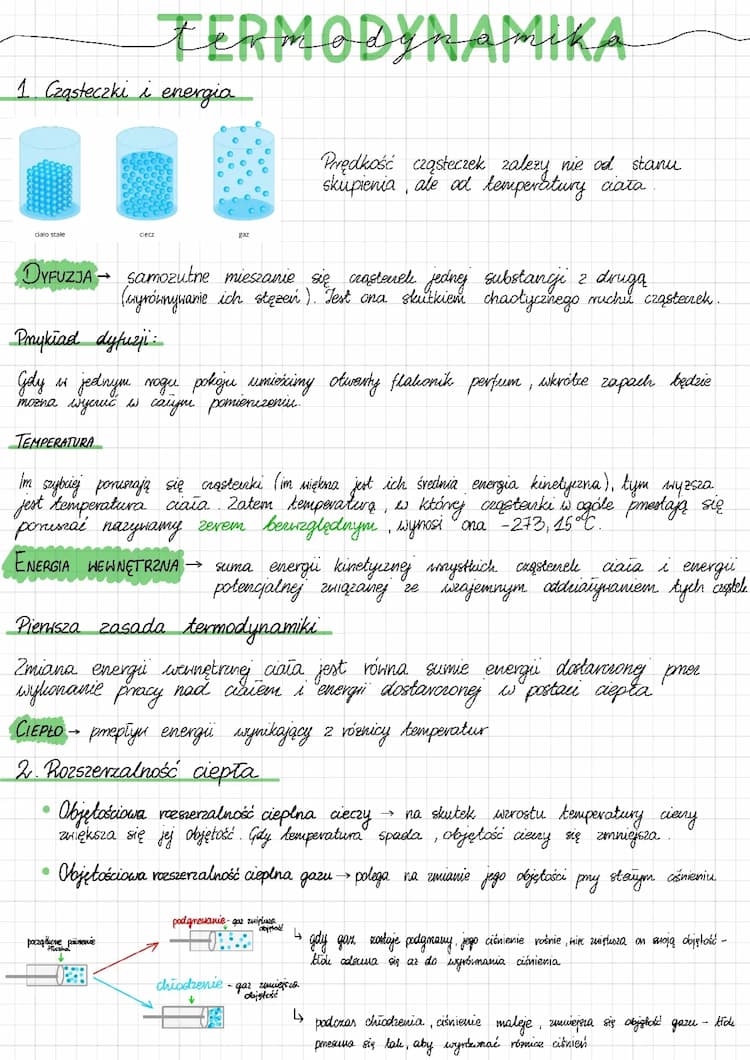 TERMODYNAMIKA
termodynamika
1. Cząsteczki i energia
Prędkość cząsteczek zależy nie od stanu
skupienia, ale od temperatury ciała.
ciało stałe
ciecz
gaz
DYFUZJA → samorzutne mieszanie się cząsteczek jednej substancji z drugą
(wyrównywanie ich stężeń). Jest ona skutkiem chaotycznego ruchu cząsteczek.
Przykład dyfuzji:
Gdy w jednym rogu pokoju umieścimy otwarty flakonik perfum, wkrótce zapach będzie
można wyczuć w całym pomieszczeniu.
TEMPERATURA
Im szybciej poruszają się cząsteczki (im większa jest ich średnia energia kinetyczna), tym wyższa
jest temperatura ciała. Zatem temperaturą, w której cząsteczki w ogóle przestają się
poruszać nazywamy zerem bezwzględnym, wynosi ona -273,15°C.
ENERGIA WEWNĘTRZNA → suma energii kinetycznej wszystkich cząsteczek ciała i energii
potencjalnej związanej ze wzajemnym oddziaływaniem tych cząstek
Pierwsza zasada termodynamiki
Zmiana energii wewnętrznej ciała jest równa sumie energii dostarczonej przez
wykonanie pracy nad ciałem i energii dostarczonej w postaci ciepła
CIEPŁO → przepływ energii wynikający z różnicy temperatur
2. Rozszerzalność ciepła
• Objętościowa rozszerzalność cieplna cieczy → na skutek wzrostu temperatury cieczy
zwiększa się jej objętość. Gdy temperatura spada, objętość cieczy się zmniejsza.
• Objętościowa rozszerzalność cieplna gazu → polega na zmianie jego objętości przy stałym ciśnieniu
podgrzewanie - gaz zwiększa
objętość
początkowe położenie
tłoka
↳ gdy gaz zostaje podgrzany, jego ciśnienie rośnie, więc zwiększa on swoją objętość -
tłok odsuwa się aż do wyrównania ciśnienia
chłodzenie - gaz zmniejsza
objętość
↳ podczas chłodzenia, ciśnienie maleje, zmniejsza się objętość gazu - tłok
przesuwa się tak, aby wyrównać różnicę ciśnień